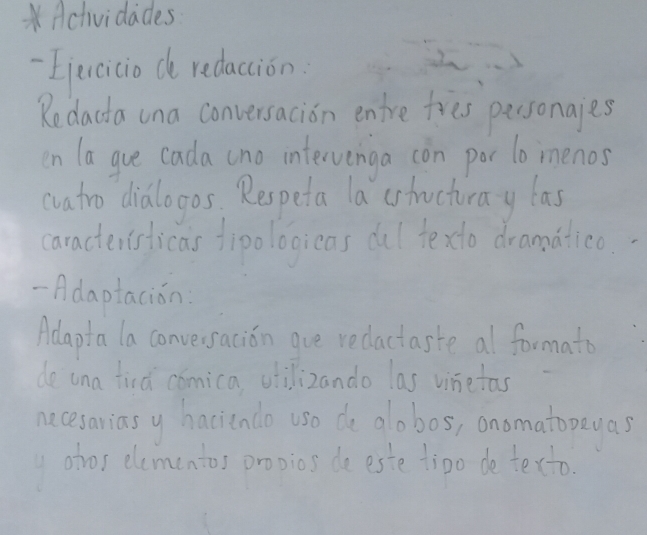 * Actividades:
- Ejercicio de redacción:
Redacta una conversación entre tres personajes
en la que cada uno intervenga con por lo menos
cuatro diálogos. Respeta la estructura y las
características tipológicas del texto dramático.
- Adaptación:
Adapta la conversación que redactaste al formato
de una tira cómica, utilizando las viñetas
necesarias y haciendo uso de globos, onomatopeyas
y otros elementos propios de este tipo de texto.